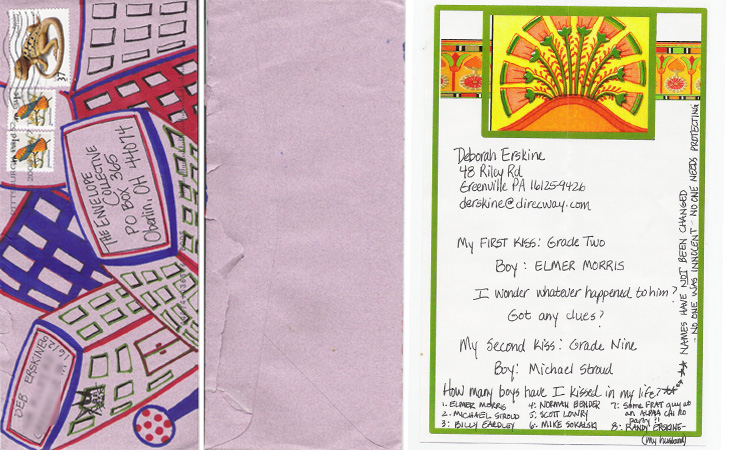 37
THE ENVELOPE
COLLECTIVE
PO BOX 365
Oberlin, OH 44074
DEB ERSKINE
Deborah Erskine
48 Riley Rd
Greenville PA 16125-9426
derskine@direcway.com
My FIRST KISS: Grade Two
Boy: ELMER MORRIS
I wonder whatever happened to him?
Got any clues?
My Second Kiss: Grade Nine
Boy: Michael Stroud
How many boys have I kissed in my life?**
1. ELMER MORRIS
2. MICHAEL STROUD
3: BILLY EARDLEY
4: NORMAN BENDER
5. SCOTT LOWRY
6. MIKE SOKALSKI
7: Some FRAT guy at
an ALPHA CHI RO
party!!
8: RANDY ERSKINE-
(my husband)
** NAMES HAVE NOT BEEN CHANGED
- NO ONE WAS INNOCENT - NO ONE NEEDS PROTECTING